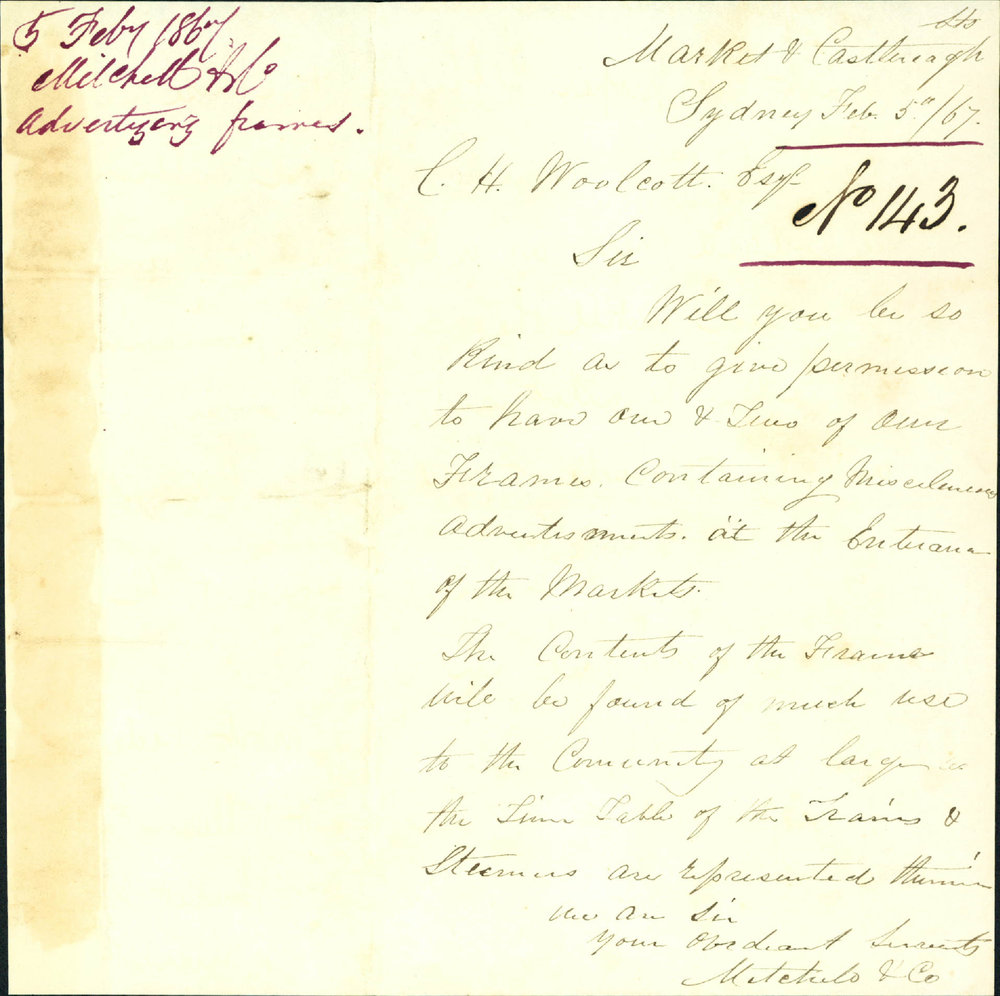 5 Feby 1867.
Mitchell & Co
Advertizing frames.
Sts
Market & Castlereagh
Sydney Feb. 5th/67.
C. H. Woolcott. Esqr
No 143.
Sir
Will you be so
Kind as to give permission
to have one & Two of our
Frames. Containing
Advertisments. at the
of the Markets.
The Contents of the Frame
will be found of much use
to the at large as
the Time Table of the Trains &
Steemers are represented therein
we are Sir
your Obediant Servents
Mitchell & Co